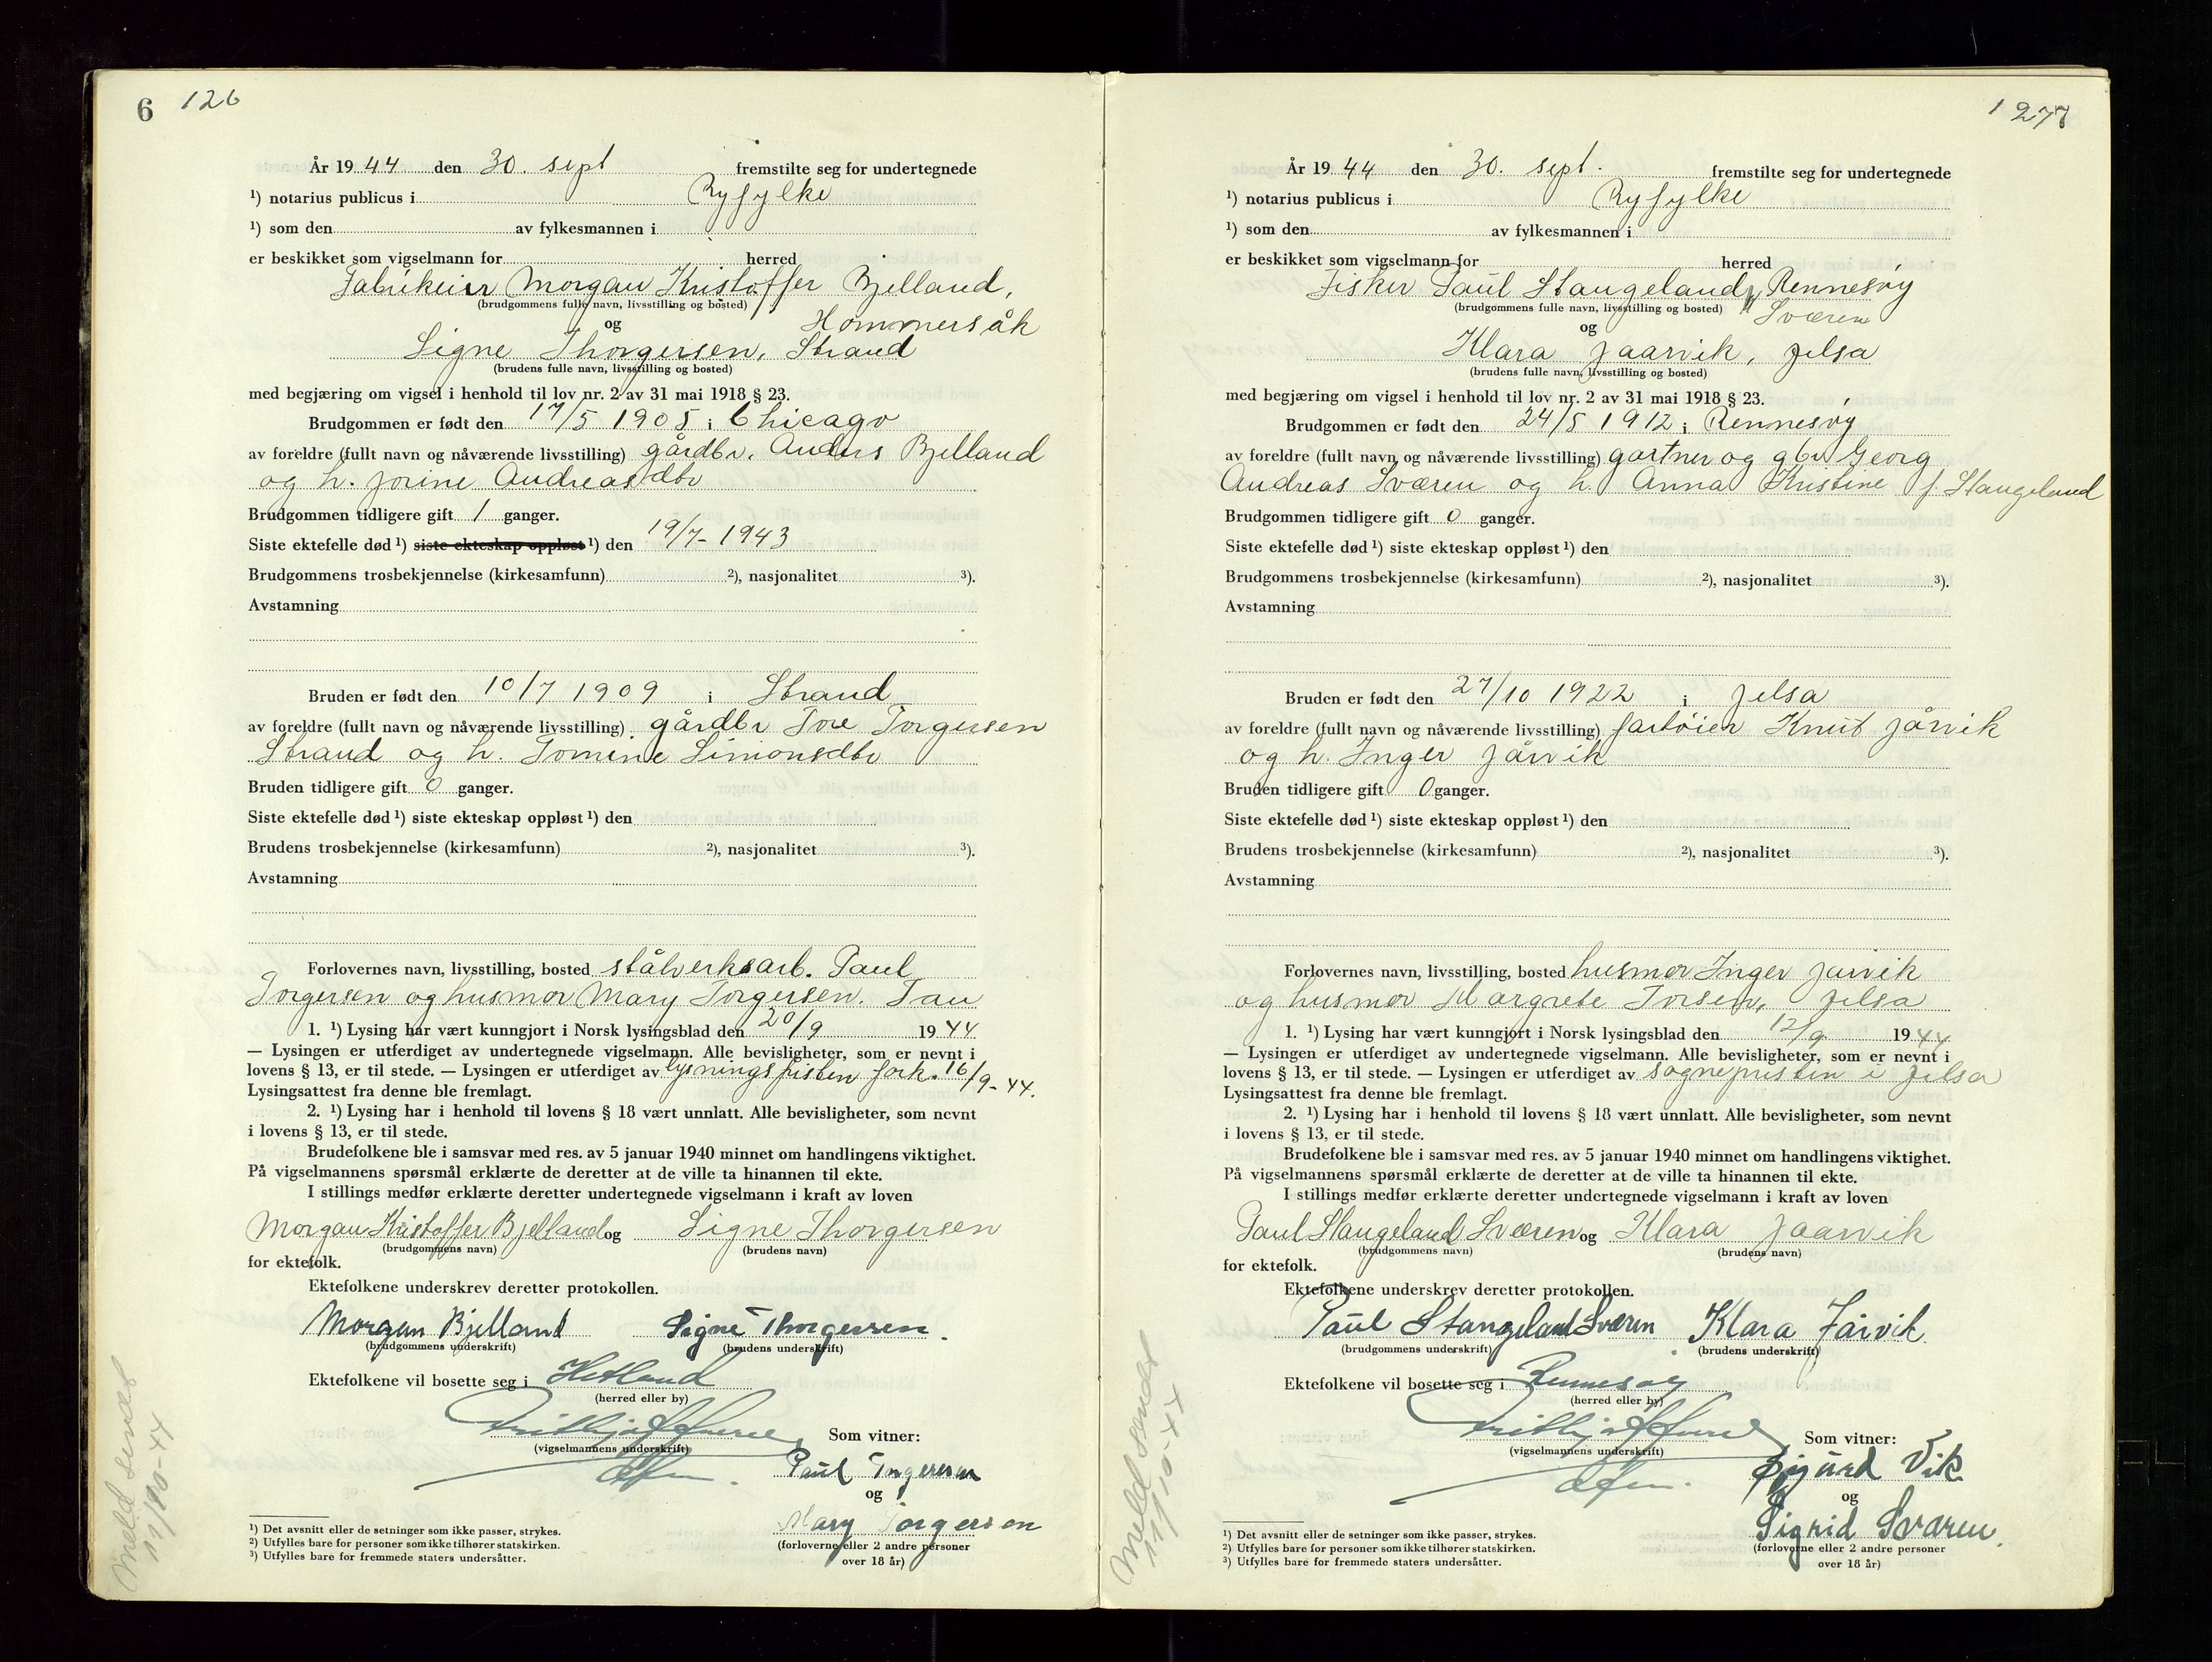 6 126
År 19 44 den 30. sept fremstilte seg for undertegnede
¹) notarius publicus i Ryfylke
¹) som den av fylkesmannen i
er beskikket som vigselmann for herred
Fabrikeier Morgan Kristoffer Bjelland,
(brudgommens fulle navn, livsstilling og bosted)
og Hommersåk
Signe Thorgersen, Strand
(brudens fulle navn, livsstilling og bosted)
med begjæring om vigsel i henhold til lov nr. 2 av 31 mai 1918 § 23.
Brudgommen er født den 17/5 1905 i Chicago
av foreldre (fullt navn og nåværende livsstilling) gårdbr. Anders Bjelland
og h. Jorine Andreasdtr
Brudgommen tidligere gift 1 ganger.
Siste ektefelle død ¹) siste ekteskap oppløst ¹) den 19/7- 1943
Brudgommens trosbekjennelse (kirkesamfunn) ²), nasjonalitet ³).
Avstamning
Bruden er født den 10/7 1909 i Strand
av foreldre (fullt navn og nåværende livsstilling) gårdbr Tore Torgersen
Strand og h. Tomine Simonsdtr
Bruden tidligere gift 0 ganger.
Siste ektefelle død ¹) siste ekteskap oppløst ¹) den
Brudens trosbekjennelse (kirkesamfunn) ²), nasjonalitet ³).
Avstamning
Forlovernes navn, livsstilling, bosted stålverksarb. Paul
Torgersen og husmor Mary Torgersen. Tau
1. ¹) Lysing har vært kunngjort i Norsk lysingsblad den 20/9 19 44
— Lysingen er utferdiget av undertegnede vigselmann. Alle bevisligheter, som er nevnt i
lovens § 13, er til stede. — Lysingen er utferdiget av lysningsfristen fork. 16/9-44.
Lysingsattest fra denne ble fremlagt.
2. ¹) Lysing har i henhold til lovens § 18 vært unnlatt. Alle bevisligheter, som nevnt
i lovens § 13, er til stede.
Brudefolkene ble i samsvar med res. av 5 januar 1940 minnet om handlingens viktighet.
På vigselmannens spørsmål erklærte de deretter at de ville ta hinannen til ekte.
I stillings medfør erklærte deretter undertegnede vigselmann i kraft av loven
Morgan Kristoffer Bjelland og Signe Thorgersen
(brudgommens navn) (brudens navn)
for ektefolk.
Ektefolkene underskrev deretter protokollen.
Morgan Bjelland Signe Thorgersen.
(brudgommens underskrift) (brudens underskrift)
Ektefolkene vil bosette seg i Hetland
(herred eller by)
(vigselmannens underskrift) Som vitner:
Paul Torgersen
og
Mary Torgersen
(forloverne eller 2 andre personer
over 18 år)
¹) Det avsnitt eller de setninger som ikke passer, strykes.
²) Utfylles bare for personer som ikke tilhører statskirken.
³) Utfylles bare for fremmede staters undersåtter.
Meld. sendt
11/10-44
127
7
År 19 44 den 30. sept. fremstilte seg for undertegnede
¹) notarius publicus i Ryfylke
¹) som den av fylkesmannen i
er beskikket som vigselmann for herred
Fisker Paul Stangeland, Rennesøy
(brudgommens fulle navn, livsstilling og bosted) Sværen
og
Klara Jaarvik, Jelsa
(brudens fulle navn, livsstilling og bosted)
med begjæring om vigsel i henhold til lov nr. 2 av 31 mai 1918 § 23.
Brudgommen er født den 24/5 1912 i Rennesøy
av foreldre (fullt navn og nåværende livsstilling) gartner og gbr Georg
Andreas Sværen og h. Anna Kristine f. Stangeland
Brudgommen tidligere gift 0 ganger.
Siste ektefelle død ¹) siste ekteskap oppløst ¹) den
Brudgommens trosbekjennelse (kirkesamfunn) ²), nasjonalitet ³).
Avstamning
Bruden er født den 27/10 1922 i Jelsa
av foreldre (fullt navn og nåværende livsstilling) fartøier Knut Jårvik
og h. Inger Jårvik
Bruden tidligere gift 0 ganger.
Siste ektefelle død ¹) siste ekteskap oppløst ¹) den
Brudens trosbekjennelse (kirkesamfunn) ²), nasjonalitet ³).
Avstamning
Forlovernes navn, livsstilling, bosted husmor Inger Jarvik
og husmor Margrete Torsen, Jelsa
1. ¹) Lysing har vært kunngjort i Norsk lysingsblad den 12/9 19 44
— Lysingen er utferdiget av undertegnede vigselmann. Alle bevisligheter, som er nevnt i
lovens § 13, er til stede. — Lysingen er utferdiget av sognepresten i Jelsa
Lysingsattest fra denne ble fremlagt.
2. ¹) Lysing har i henhold til lovens § 18 vært unnlatt. Alle bevisligheter, som nevnt
i lovens § 13, er til stede.
Brudefolkene ble i samsvar med res. av 5 januar 1940 minnet om handlingens viktighet.
På vigselmannens spørsmål erklærte de deretter at de ville ta hinannen til ekte.
I stillings medfør erklærte deretter undertegnede vigselmann i kraft av loven
Paul Stangeland Sværen og Klara Jaarvik
(brudgommens navn) (brudens navn)
for ektefolk.
Ektefolkene underskrev deretter protokollen.
Paul Stangeland Sværen Klara Jårvik
(brudgommens underskrift) (brudens underskrift)
Ektefolkene vil bosette seg i Rennesøy
(herred eller by)
(vigselmannens underskrift) Som vitner:
Sigurd Vik
og
Sigrid Sværen.
(forloverne eller 2 andre personer
over 18 år)
¹) Det avsnitt eller de setninger som ikke passer, strykes.
²) Utfylles bare for personer som ikke tilhører statskirken.
³) Utfylles bare for fremmede staters undersåtter.
Meld. sendt
11/10-44